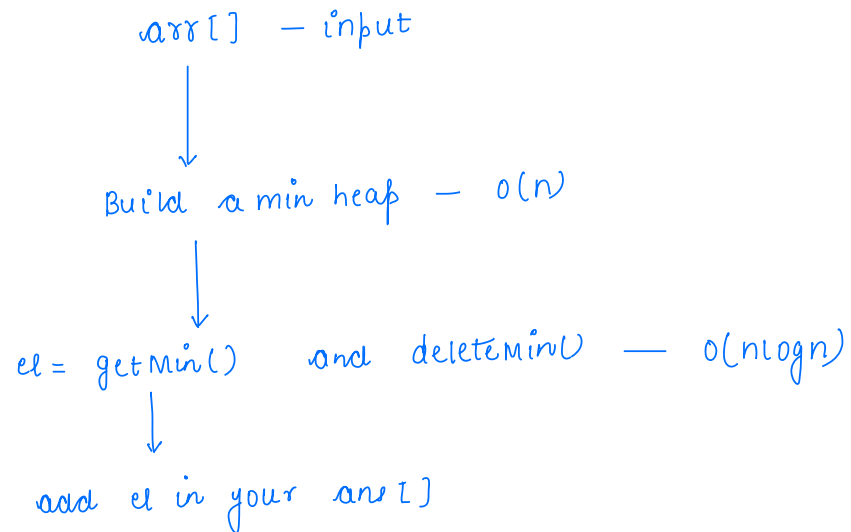 arr[] - input
Build a min heap - O(n)
el = getMin() and deleteMin() - O(nlogn)
add el in your ans[]